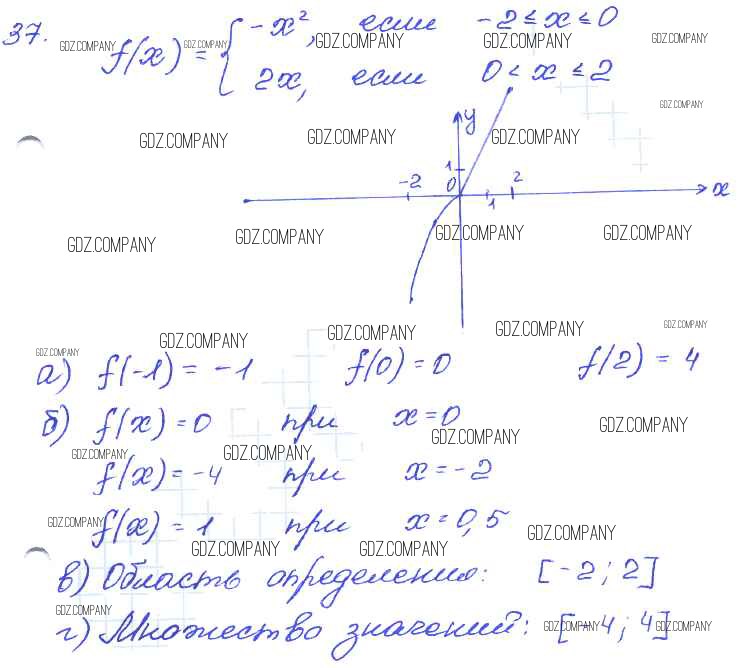 37. f(x) = { -x², если -2 ≤ x ≤ 0
2x, если 0 < x ≤ 2
GDZ.COMPANY GDZ.COMPANY GDZ.COMPANY GDZ.COMPANY GDZ.COMPANY
GDZ.COMPANY
y
GDZ.COMPANY GDZ.COMPANY GDZ.COMPANY
1
-2 0 1 2 x
GDZ.COMPANY GDZ.COMPANY GDZ.COMPANY GDZ.COMPANY
GDZ.COMPANY GDZ.COMPANY GDZ.COMPANY GDZ.COMPANY
GDZ.COMPANY
а) f(-1) = -1 f(0) = 0 f(2) = 4
б) f(x) = 0 при x = 0
GDZ.COMPANY GDZ.COMPANY
GDZ.COMPANY GDZ.COMPANY
f(x) = -4 при x = -2
GDZ.COMPANY f(x) = 1 при x = 0,5
GDZ.COMPANY GDZ.COMPANY GDZ.COMPANY
в) Область определения: [-2; 2]
GDZ.COMPANY
г) Множество значений: [-4; 4]
GDZ.COMPANY GDZ.COMPANY